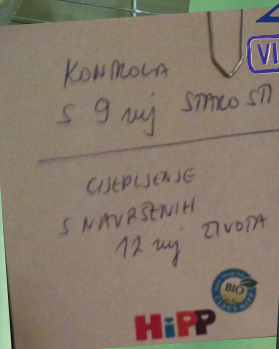 VI
KONTROLA
S 9 mj STAROSTI
CIJEPLJENJE
S NAVRŠENIH
12 mj ŽIVOTA
BIO
HiPP